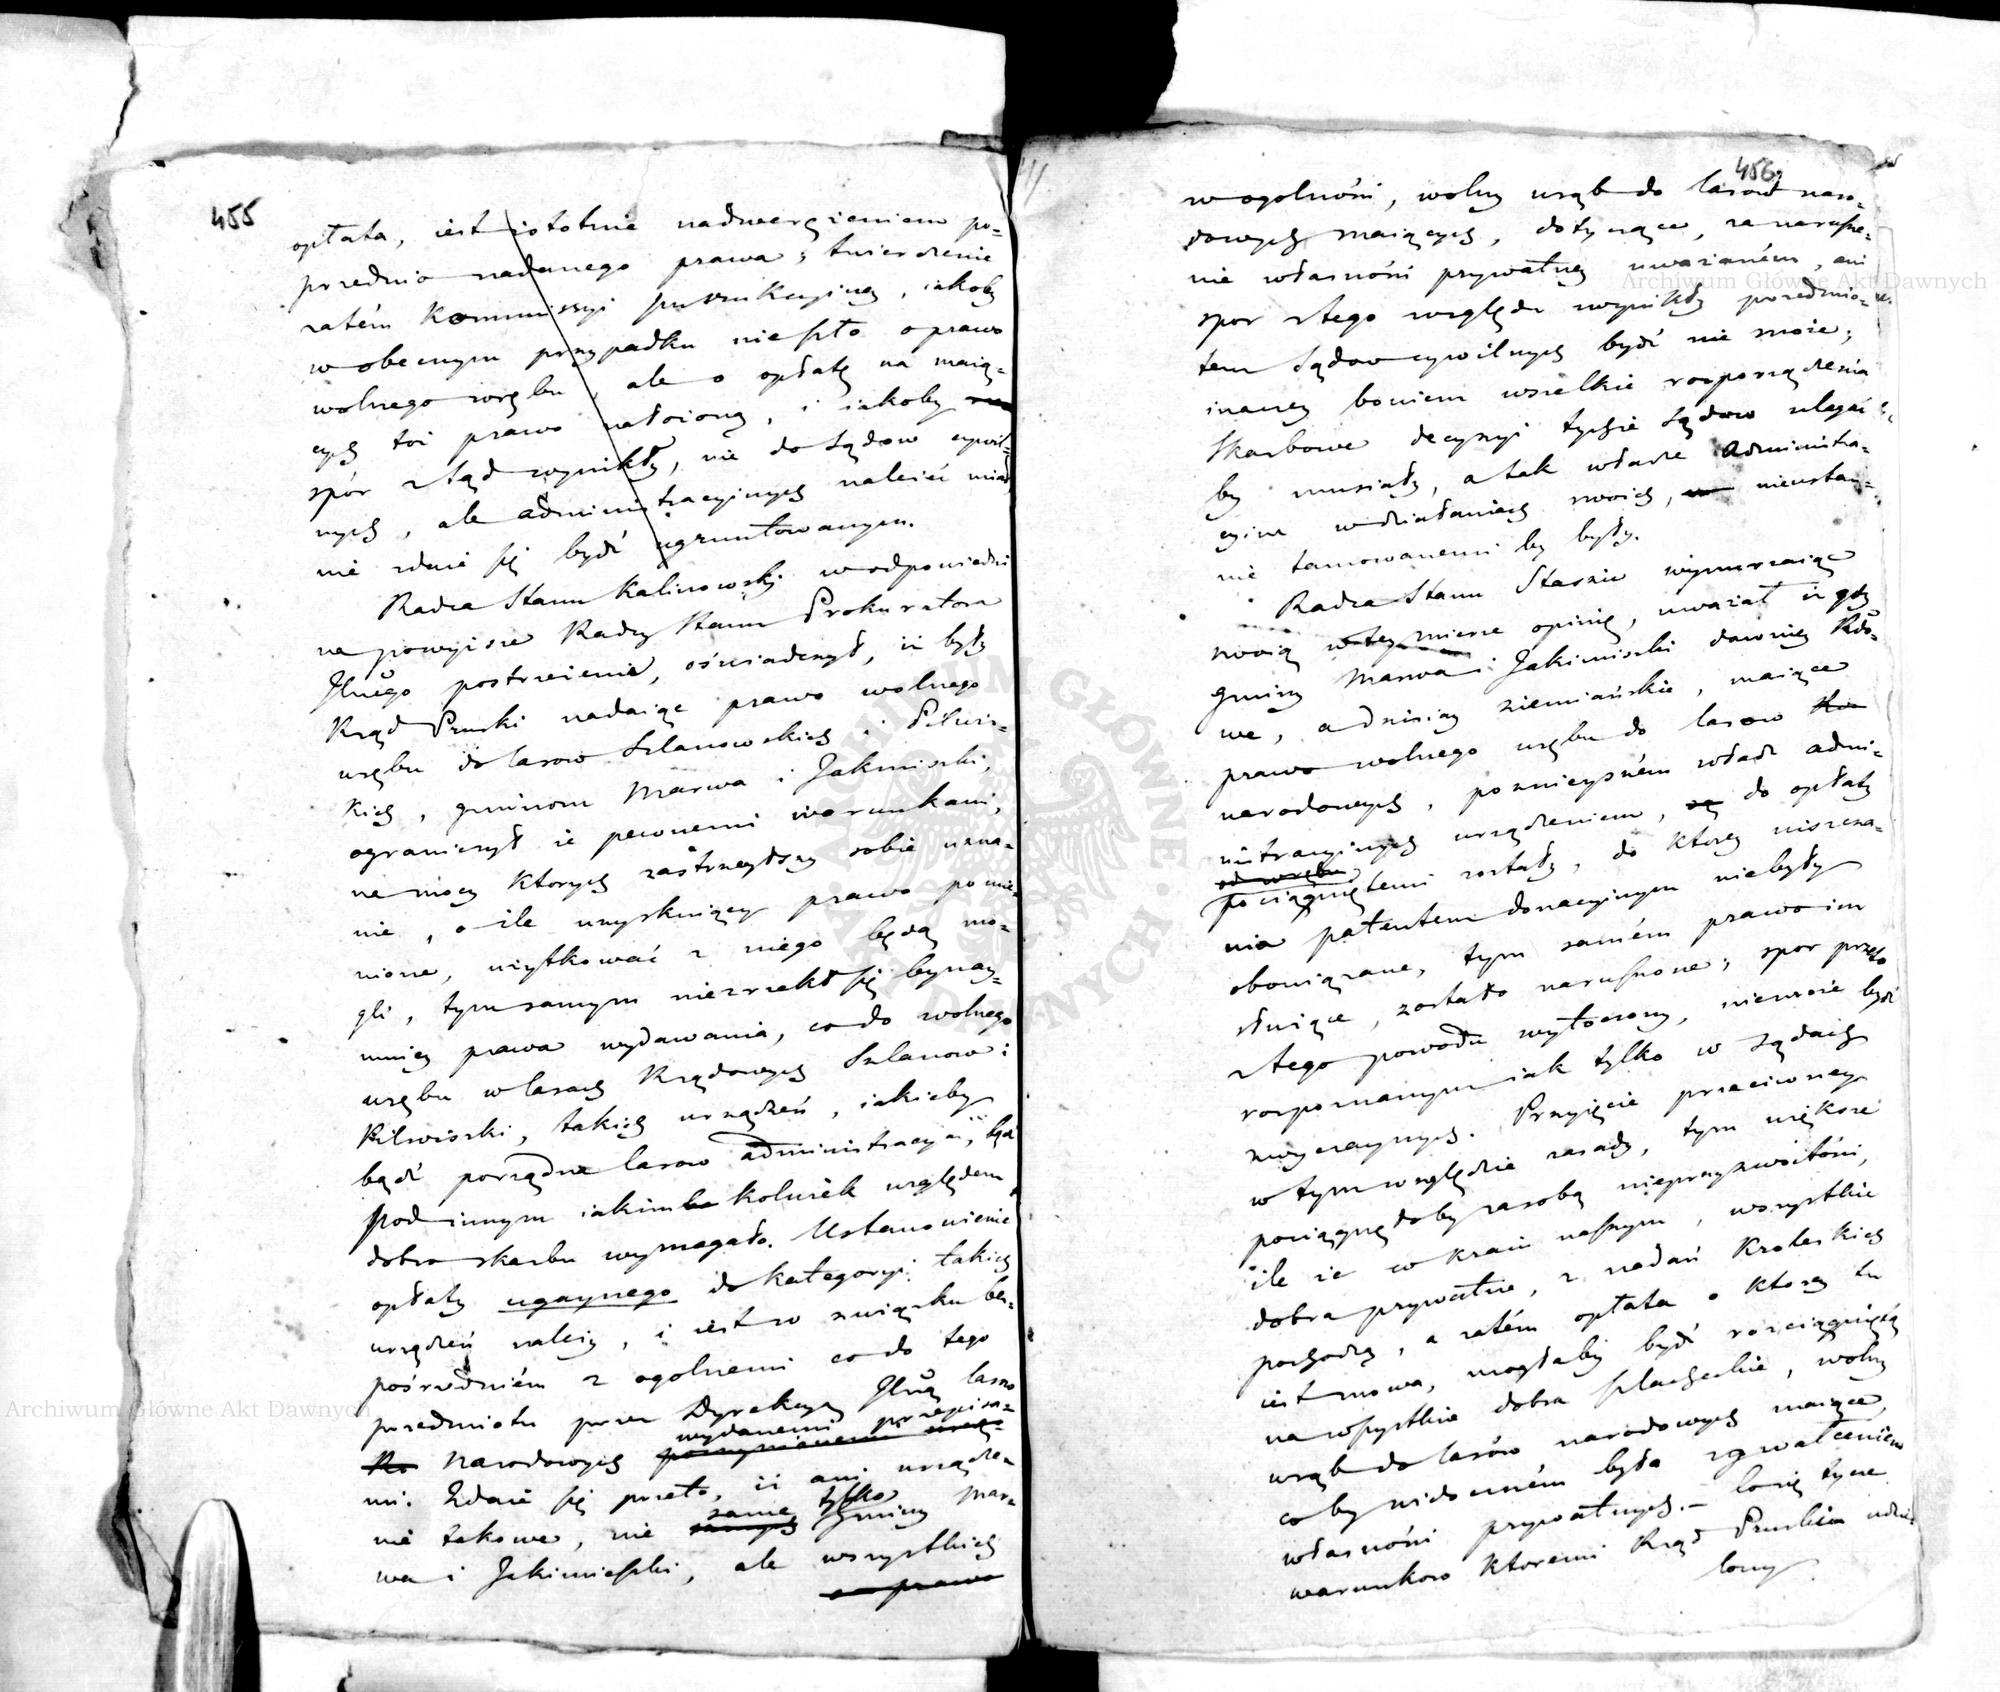 455
opłata, iest istotnie nadwerężeniem po-
przednio nadanego prawa; twierdzenie
zatém Kommissyi Instrukcyiney, iakoby
w obecnym przypadku nieszło o prawo
wolnego wrębu, ale o opłatę na maią-
cych toż prawo nałożoną, i iakoby
spór ztąd wynikły, nie do Sądow cywil-
nych, ale administracyinych należeć miał,
nie zdaie się bydź ugruntowanym.
Radca Stanu Kalinowski w odpowiedzi
na powyższe Radcy Stanu Prokuratora
Jlnego postrzeżenie, oświadczył, iż były
Rząd Pruski nadaiąc prawo wolnego
wrębu do lasow Szlanowskich i Pilwis-
kich, gminom Marwa i Jakimiszki,
ograniczył ie pewnemi warunkami,
na mocy ktorych zastrzegłszy sobie uzna-
nie, o ile uzyskuiący prawo pomie-
nione, użytkować z niego będą mo-
gli, tym samym niezrzekł się bynay-
mniey prawa wydawania, co do wolnego
wrębu w lasach Rządowych Szlanow i
Pilwiszki, takich urządzeń, iakichby
bądź porządna lasow administracyia, bądź
pod innym iakimkolwiek względem
dobro skarbu wymagało. Ustanowienie
opłaty ugaynego do kategoryi takich
urządzeń należy, i iest w związku bez-
pośrzedniém z ogolnemi co do tego
przedmiotu przez Dyrekcyą Jlną lasow
wydanemi przepisa-
Narodowych
mi. Zdaie się przeto, iż ani urządze-
nie takowe, nie same tylko gminy Mar-
wa i Jakimiszki, ale wszystkich
456
w ogolności, wolny wrąb do lasow naro-
dowych maiących, dotyczące, za narusze-
nie własności prywatney uważaném, ani
spor z tego względu wynikły przedmio-
tem Sądow cywilnych bydź nie może;
inaczey bowiem wszelkie rozporządzenia
Skarbowe decyzyi tychże Sądow ulegać
by musiały, a tak władze Administra-
cyine w działaniach swoich, nieustan-
nie tamowanemi by były.
Radca Stanu Staszic wynurzaiąc
swoią w tey mierze opinię, uważał iż gdy
gminy Marwa i Jakimiszki dawniey Rządo-
we, a dzisiay ziemiańskie, maiące
prawo wolnego wrębu do lasow
narodowych, poźnieyszém władz admi-
nistracyinych urządzeniem, do opłaty
pociągniętemi zostały, do ktorey niszcze-
nia patentem donacyinym niebyły
obowiązane, tym samém prawo im
służące, zostało naruszone; spor przeto
z tego powodu wytoczony, nie może bydź
rozpoznanym iak tylko w Sądach
zwyczaynych. Przyięcie przeciwney
w tym względzie zasady, tym większe
pociągnęłoby za sobą nieprzyzwoitości,
ile że w kraiu naszym, wszystkie
dobra prywatne, z nadań Krolewskich
pochodzą, a zatém opłata o ktorey tu
iest mowa, mogłaby bydź rozciągniętą
na wszystkie dobra szlacheckie, wolny
wrąb do lasów narodowych maiące,
co by widoczném było zgwałceniem
własności prywatnych. – Co się tycze
warunkow ktoremi Rząd Pruski udzie-
lony
Archiwum Główne Akt Dawnych
Archiwum Główne Akt Dawnych
ARCHIWUM GŁÓWNE AKT DAWNYCH